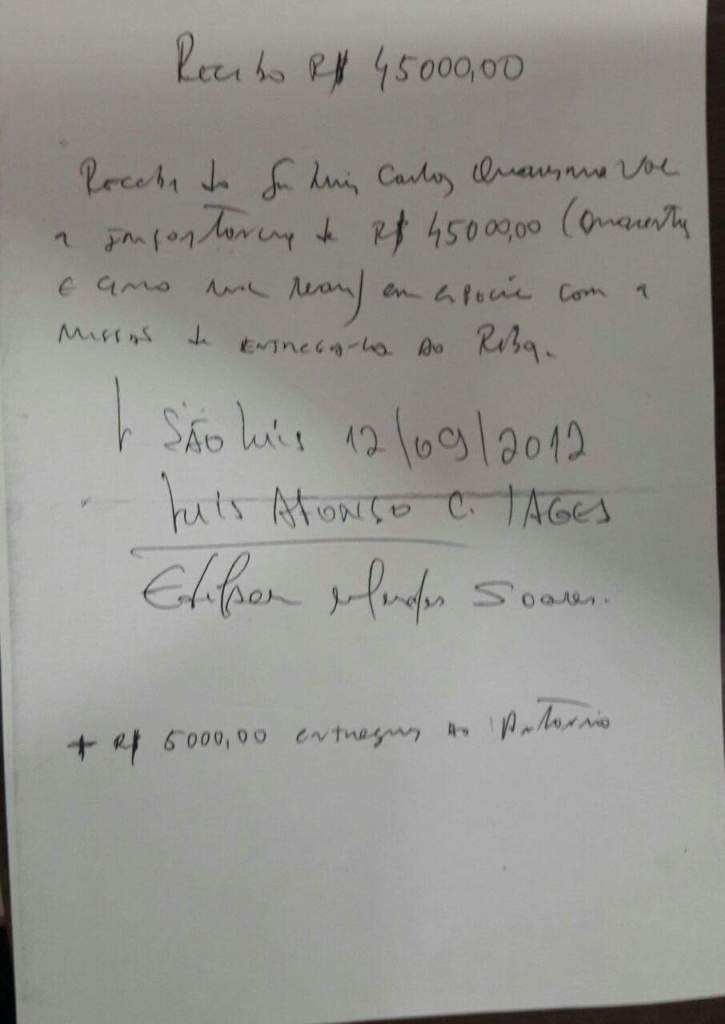 Recibo R$ 45000,00
Recebi do Sr Luis Carlos
a importancia de R$ 45000,00 (Quarenta
e cinco mil reais) em especie com a
missas de entrega-la ao Riba.
São Luis 12/09/2012
Luis Afonso C. LAGES
Edilson Mendes Soares.
+ R$ 5000,00 entregues ao Antonio